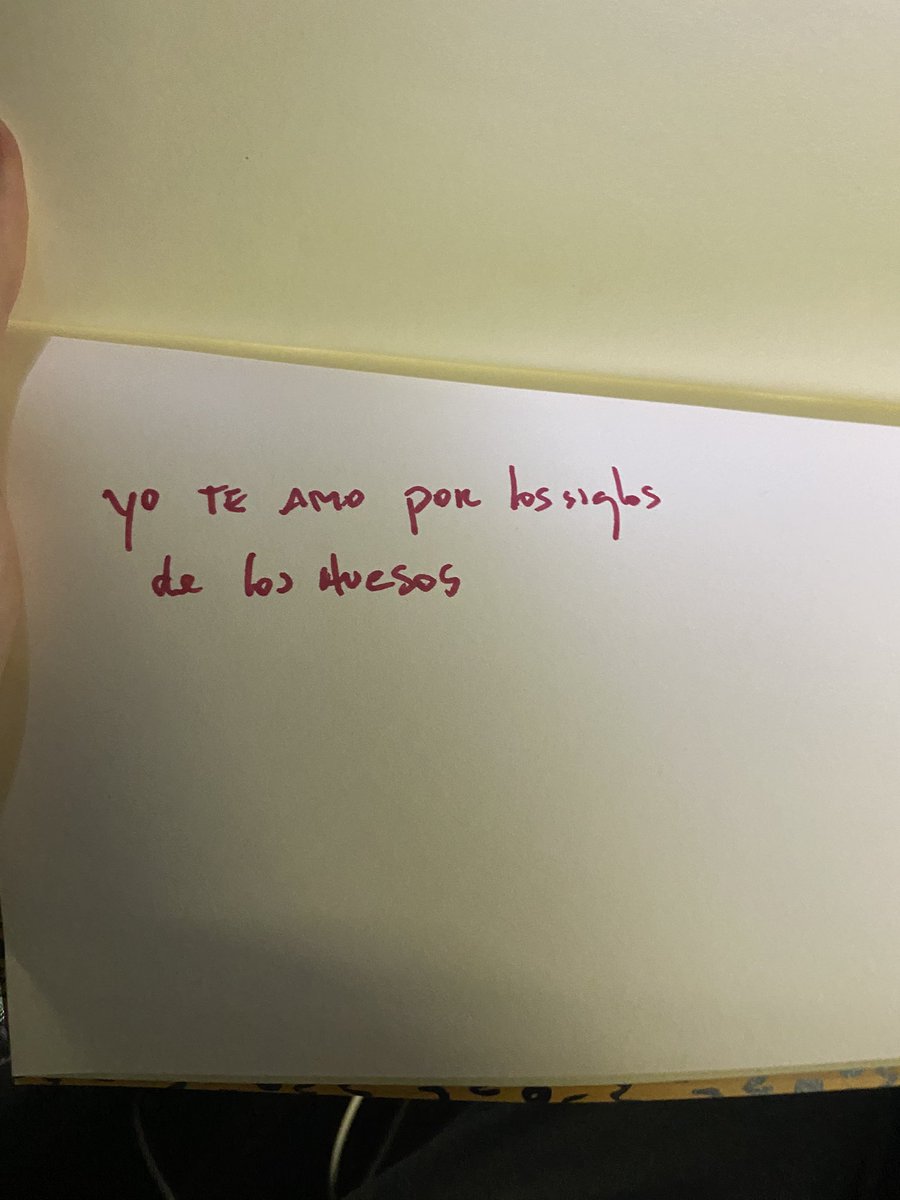 yo TE AMO por los siglos
de los Huesos